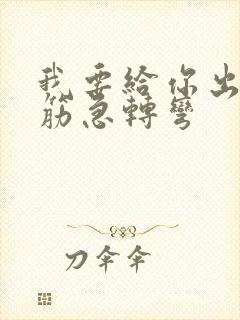 我要給你出
筋急轉彎
刀伞伞